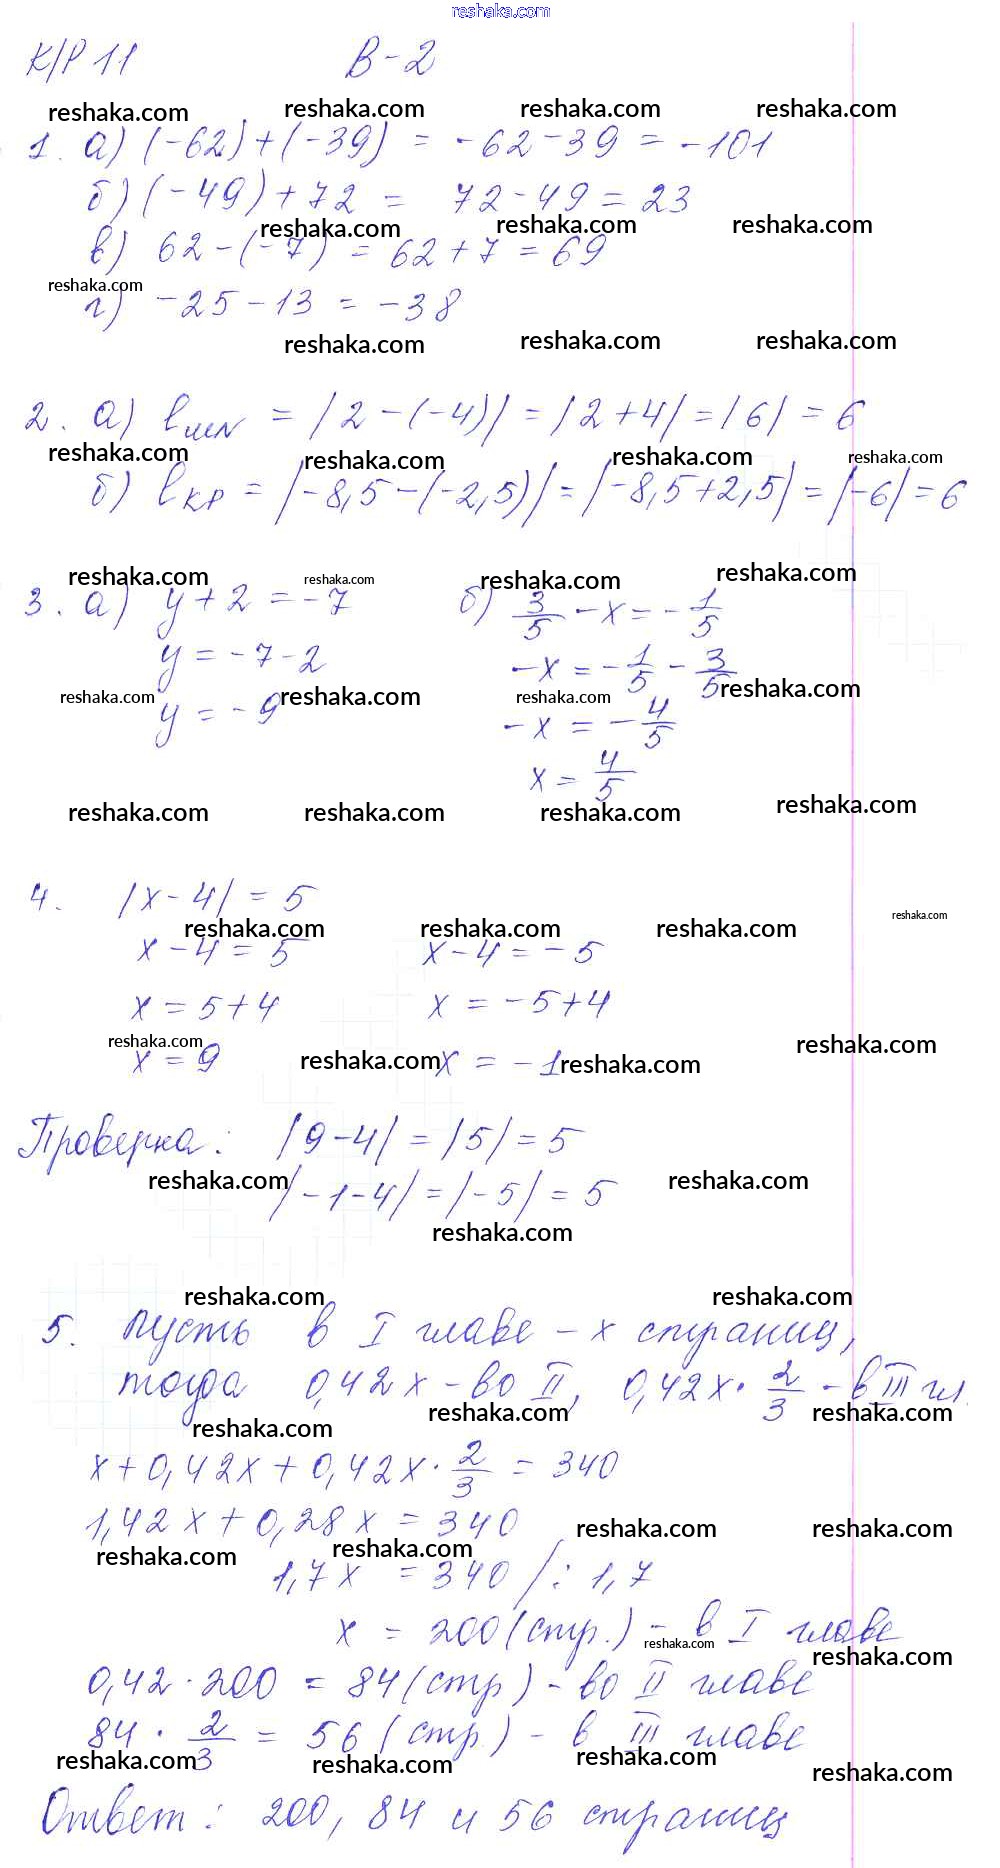 reshaka.com
К/Р 11 В-2
reshaka.com reshaka.com reshaka.com reshaka.com
1. а) (-62)+(-39) = -62-39 = -101
б) (-49)+72 = 72-49 = 23
reshaka.com reshaka.com reshaka.com
в) 62-(-7) = 62+7 = 69
reshaka.com
г) -25-13 = -38
reshaka.com reshaka.com reshaka.com
2. а) lMN = |2-(-4)| = |2+4| = |6| = 6
reshaka.com reshaka.com reshaka.com reshaka.com
б) lKP = |-8,5-(-2,5)| = |-8,5+2,5| = |-6| = 6
reshaka.com reshaka.com reshaka.com reshaka.com
3. а) y+2 = -7 б) 3/5 - x = - 1/5
y = -7-2 -x = - 1/5 - 3/5
reshaka.com reshaka.com reshaka.com reshaka.com
y = -9 -x = - 4/5
x = 4/5
reshaka.com reshaka.com reshaka.com reshaka.com
4. |x-4| = 5
reshaka.com reshaka.com reshaka.com reshaka.com
x-4 = 5 x-4 = -5
x = 5+4 x = -5+4
reshaka.com reshaka.com reshaka.com reshaka.com
x = 9 x = -1
Проверка: |9-4| = |5| = 5
reshaka.com reshaka.com
|-1-4| = |-5| = 5
reshaka.com
reshaka.com reshaka.com
5. Пусть в I главе - x страниц,
тогда 0,42x - во II, 0,42x · 2/3 - в III гл.
reshaka.com reshaka.com reshaka.com
x+0,42x+0,42x · 2/3 = 340
1,42x+0,28x = 340
reshaka.com reshaka.com reshaka.com reshaka.com
1,7x = 340 /: 1,7
x = 200 (стр.) - в I главе
reshaka.com reshaka.com
0,42 · 200 = 84 (стр) - во II главе
84 · 2/3 = 56 (стр.) - в III главе
reshaka.com reshaka.com reshaka.com reshaka.com
Ответ: 200, 84 и 56 страниц